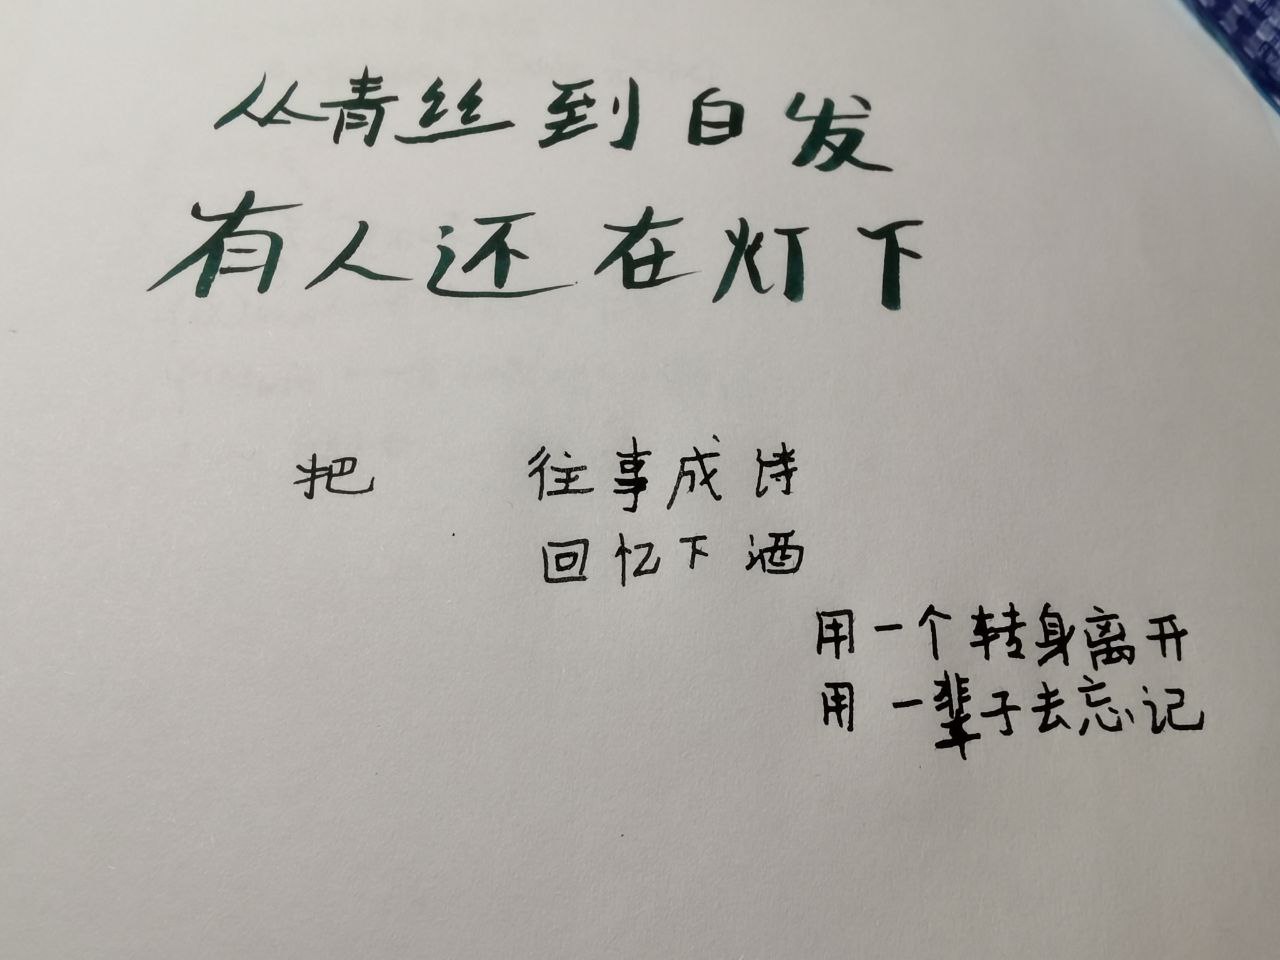 从青丝到白发
有人还在灯下
把 往事成诗
回忆下酒
用一个转身离开
用一辈子去忘记